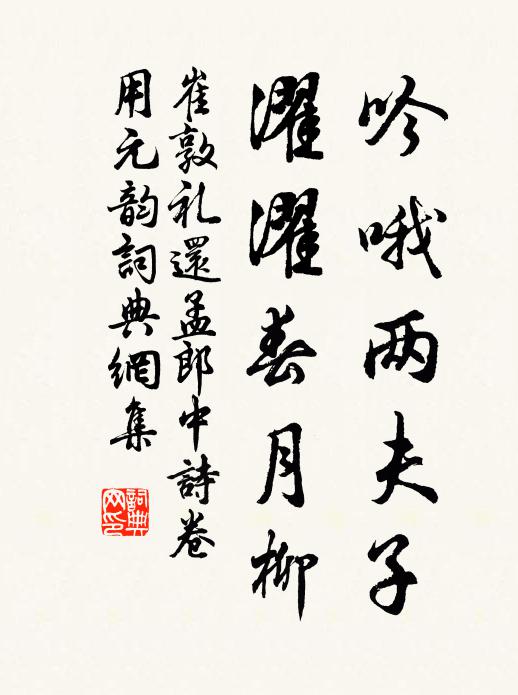 吟哦两夫子
濯濯春月柳
崔敦礼還孟郎中詩卷
用元韵詞典網集
詞典网印